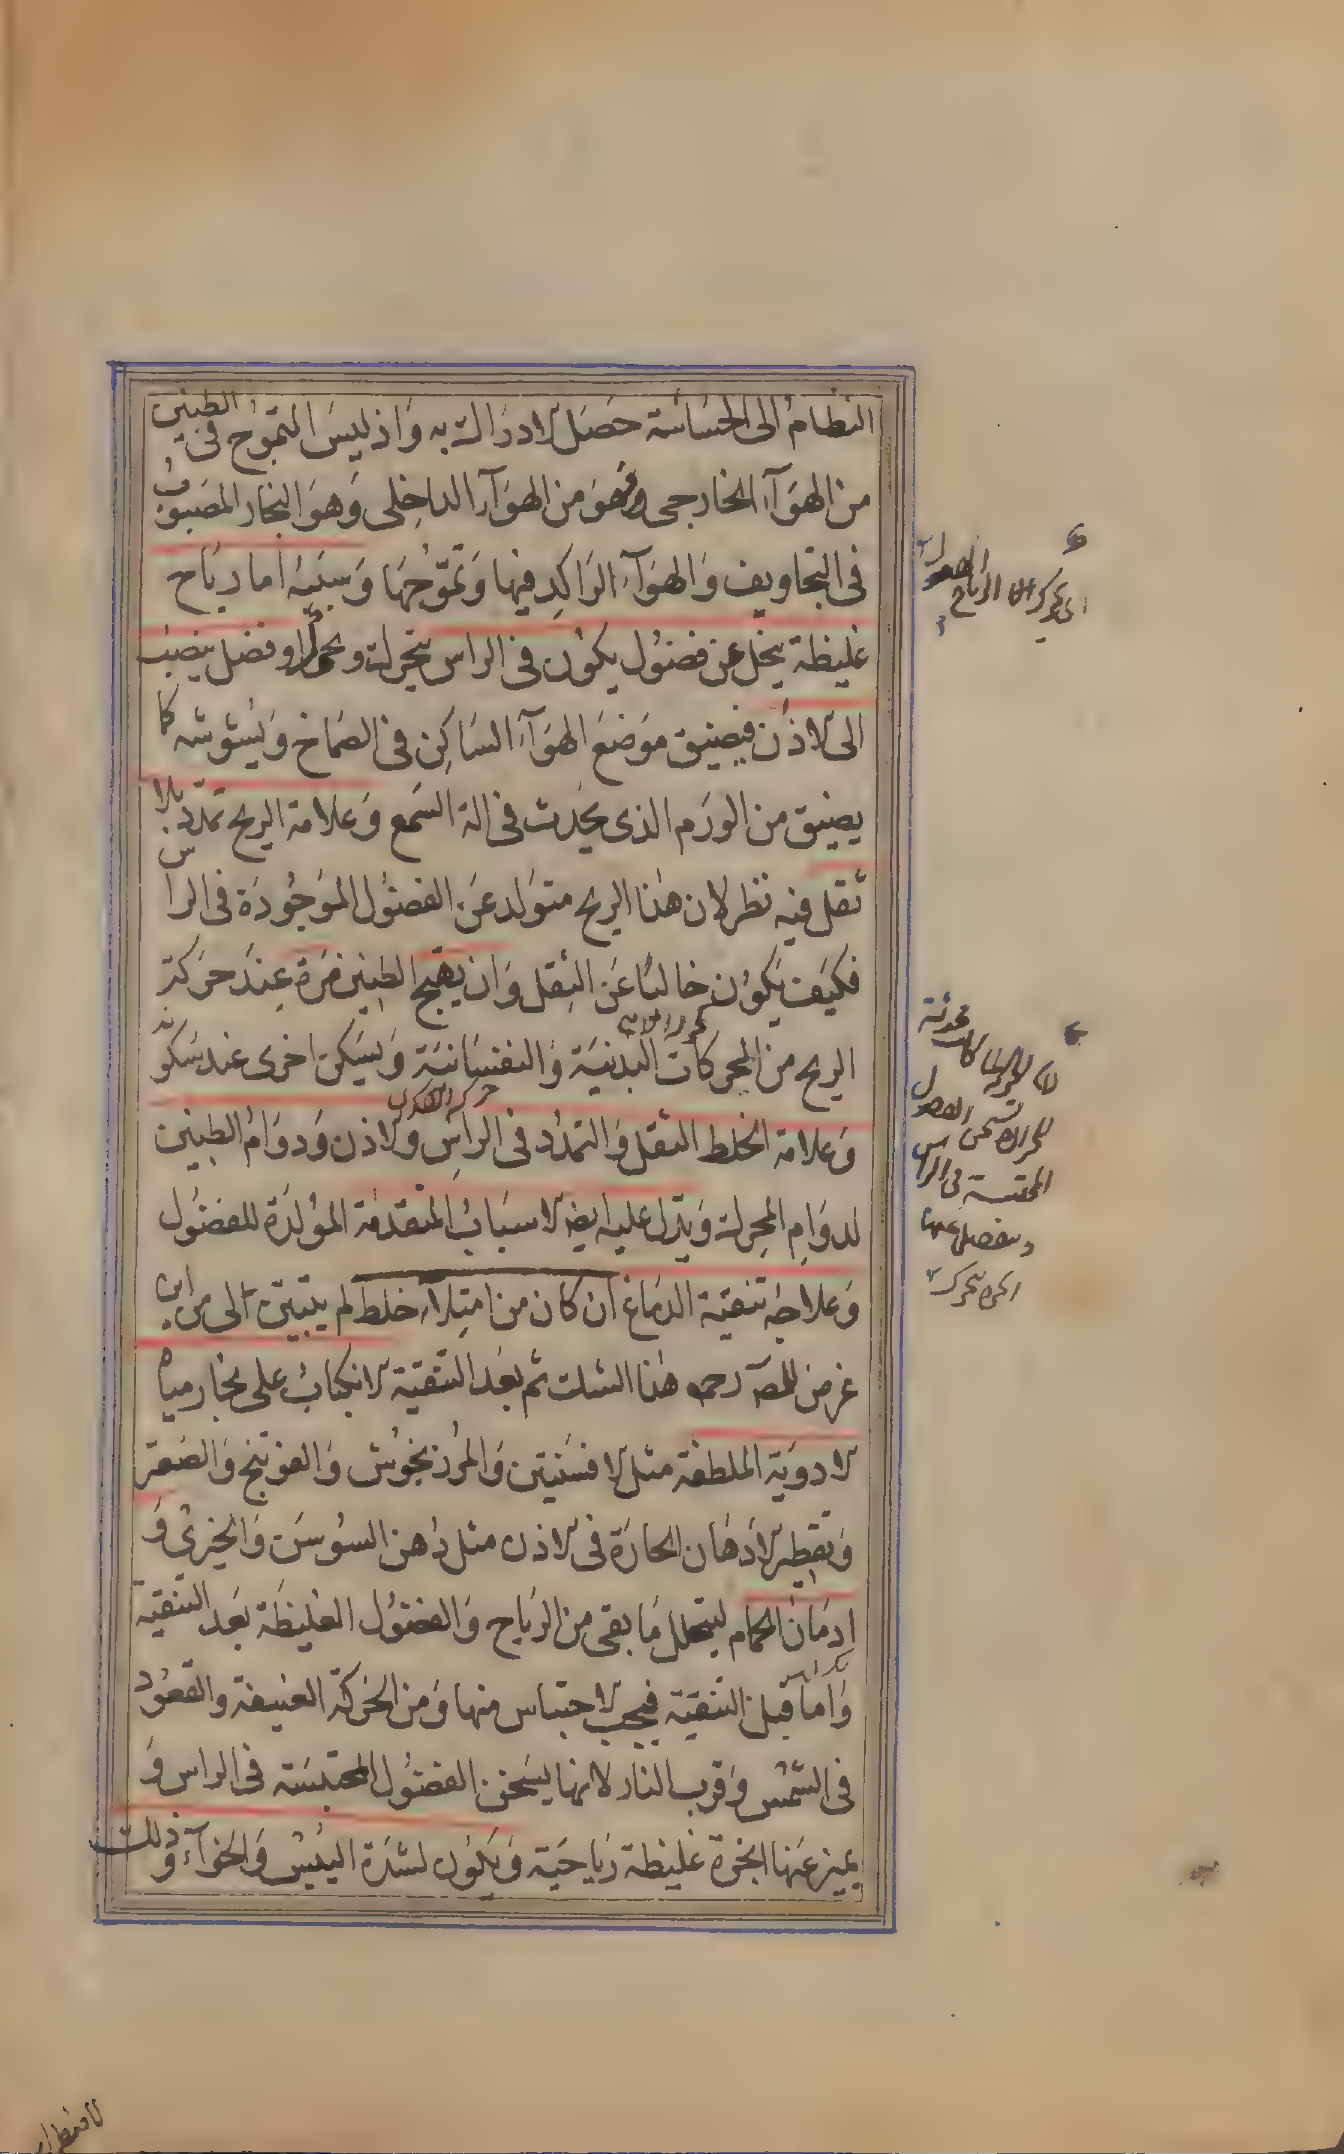 النظام الى الحساسة حصل الادراك به واذ ليس التموج فى الطنين
من الهواء الخارجى فهو من الهواء الداخلى وهو البخار المصبوب
فى التجاويف والهواء الراكد فيها وتموجها وسببه اما رياح
غليظة ينحل عن فضول يكون فى الراس يتحرك و او فضل ينصب
الى الاذن فيضيق موضع الهواء الساكن فى الصماخ ويشوشه كما
يضيق من الورم الذى يحدث فى الة السمع وعلامة الريح تمدد بلا
ثقل فيه نظر لان هذا الريح متولد عن الفضول الموجودة فى الراس
فكيف يكون خاليا عن الثقل وان يهيج الطنين مرة عند حركة
الريح من المحركات البدنية والنفسانية ويسكن اخرى عند سكونه
وعلامة الخلط الثقل والتمدد فى الراس والاذن ودوام الطنين
لدوام المحرك ويدل عليه ايضا الاسباب المتقدمة المولدة للفضول
وعلاجه تنقية الدماغ ان كان من امتلاء خلط لم يتبين لى من اين
غرض للمص رحمه هذا الشك ثم بعد التنقية الانكباب على بخار مياه
الادوية الملطفة مثل الافسنتين والمرزنجوش والفوتنج والصعتر
وتقطير الادهان الحارة فى الاذن مثل دهن السوسن والخيرى و
ادمان الحمام ليتحلل ما بقى من الرياح والفضول الغليظة بعد التنقية
واما قبل التنقية فيجب الاحتباس منها ومن الحركة العنيفة والقعود
فى الشمس وقرب النار لانها يسخن الفضول المحتبسة فى الراس و
يميز عنها ابخرة غليظة رياحية ويكون لشدة اليبس والخواء وذلك
الفضول
اى تحركه الرياح
محدثة
للحرارة تسخن الفضول
المحتبسة فى الراس
وينفصل عنها